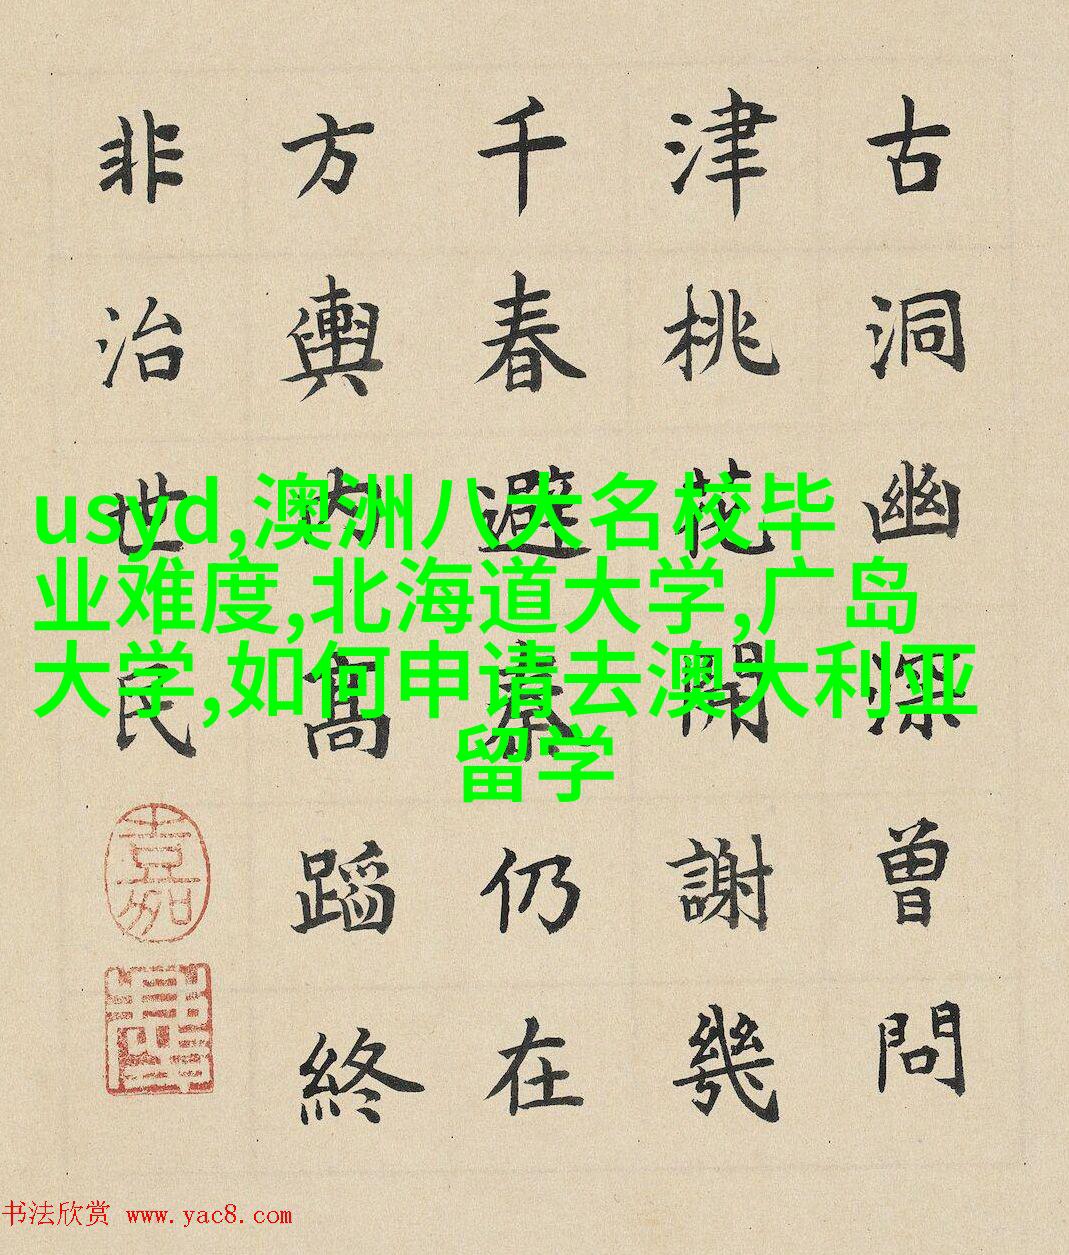 古洞幽深曾問
津桃花開謝幾
千春避秦仍在
方輿內高蹈終
非治世民
嘉
usyd,澳洲八大名校毕
业难度,北海道大学,广岛
大学,如何申请去澳大利亚
留学
书法欣赏 www.yac8.com